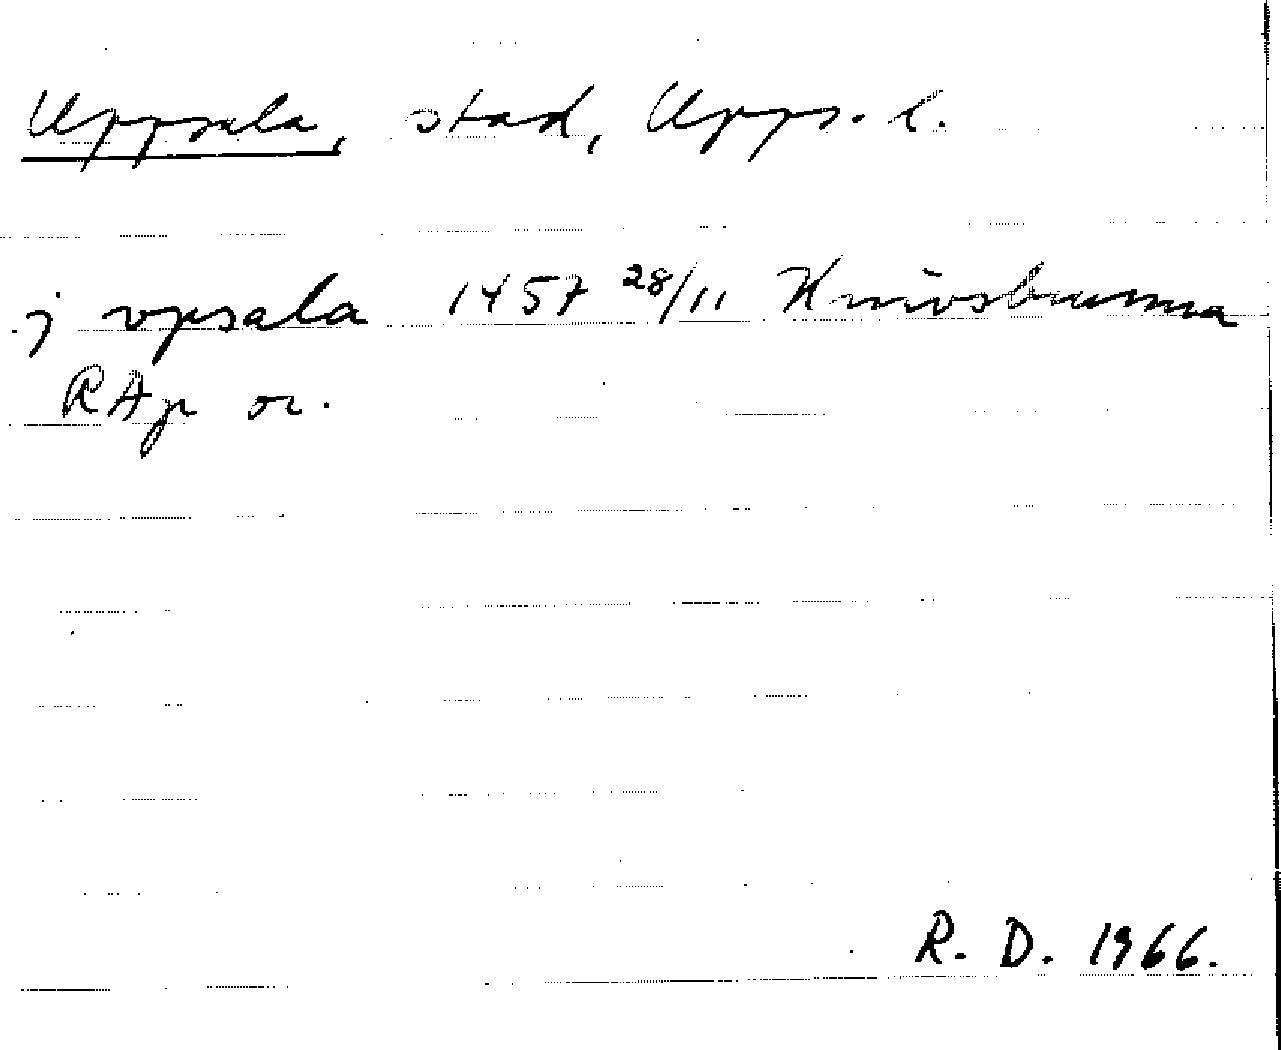 Uppsala, stad, Upps. l.
j vpsala 1457 28/11 Knivsbrunna
RAp or.
R. D. 1966.